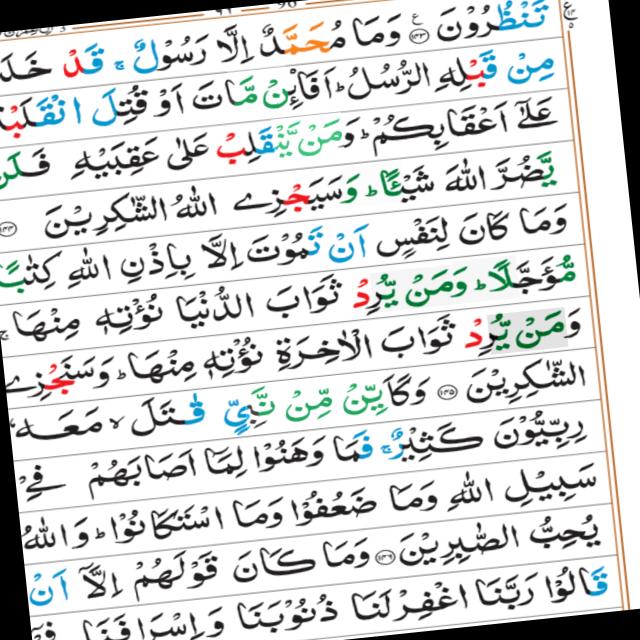 تَنْظُرُوْنَ ﴿۱۴۳﴾ وَمَا مُحَمَّدٌ اِلَّا رَسُوْلٌ ۚ قَدْ خَلَ
مِنْ قَبْلِهِ الرُّسُلُ ؕ اَفَا۟ئِنْ مَّاتَ اَوْ قُتِلَ انْقَلَبْ
عَلٰٓى اَعْقَابِكُمْ ؕ وَمَنْ يَّنْقَلِبْ عَلٰى عَقِبَيْهِ فَلَنْ
يَّضُرَّ اللّٰهَ شَيْئًا ؕ وَسَيَجْزِى اللّٰهُ الشّٰكِرِيْنَ ﴿۱۴۴﴾
وَمَا كَانَ لِنَفْسٍ اَنْ تَمُوْتَ اِلَّا بِاِذْنِ اللّٰهِ كِتٰبًا
مُّؤَجَّلًا ؕ وَمَنْ يُّرِدْ ثَوَابَ الدُّنْيَا نُؤْتِهٖ مِنْهَا ۚ
وَمَنْ يُّرِدْ ثَوَابَ الْاٰخِرَةِ نُؤْتِهٖ مِنْهَا ؕ وَسَنَجْزِى
الشّٰكِرِيْنَ ﴿۱۴۵﴾ وَكَاَيِّنْ مِّنْ نَّبِىٍّ قٰتَلَ ۙ مَعَهٗ
رِبِّيُّوْنَ كَثِيْرٌ ۚ فَمَا وَهَنُوْا لِمَاۤ اَصَابَهُمْ فِىْ
سَبِيْلِ اللّٰهِ وَمَا ضَعُفُوْا وَمَا اسْتَكَانُوْا ؕ وَاللّٰهُ
يُحِبُّ الصّٰبِرِيْنَ ﴿۱۴۶﴾ وَمَا كَانَ قَوْلَهُمْ اِلَّاۤ اَنْ
قَالُوْا رَبَّنَا اغْفِرْ لَنَا ذُنُوْبَنَا وَاِسْرَافَنَا فِىْۤ